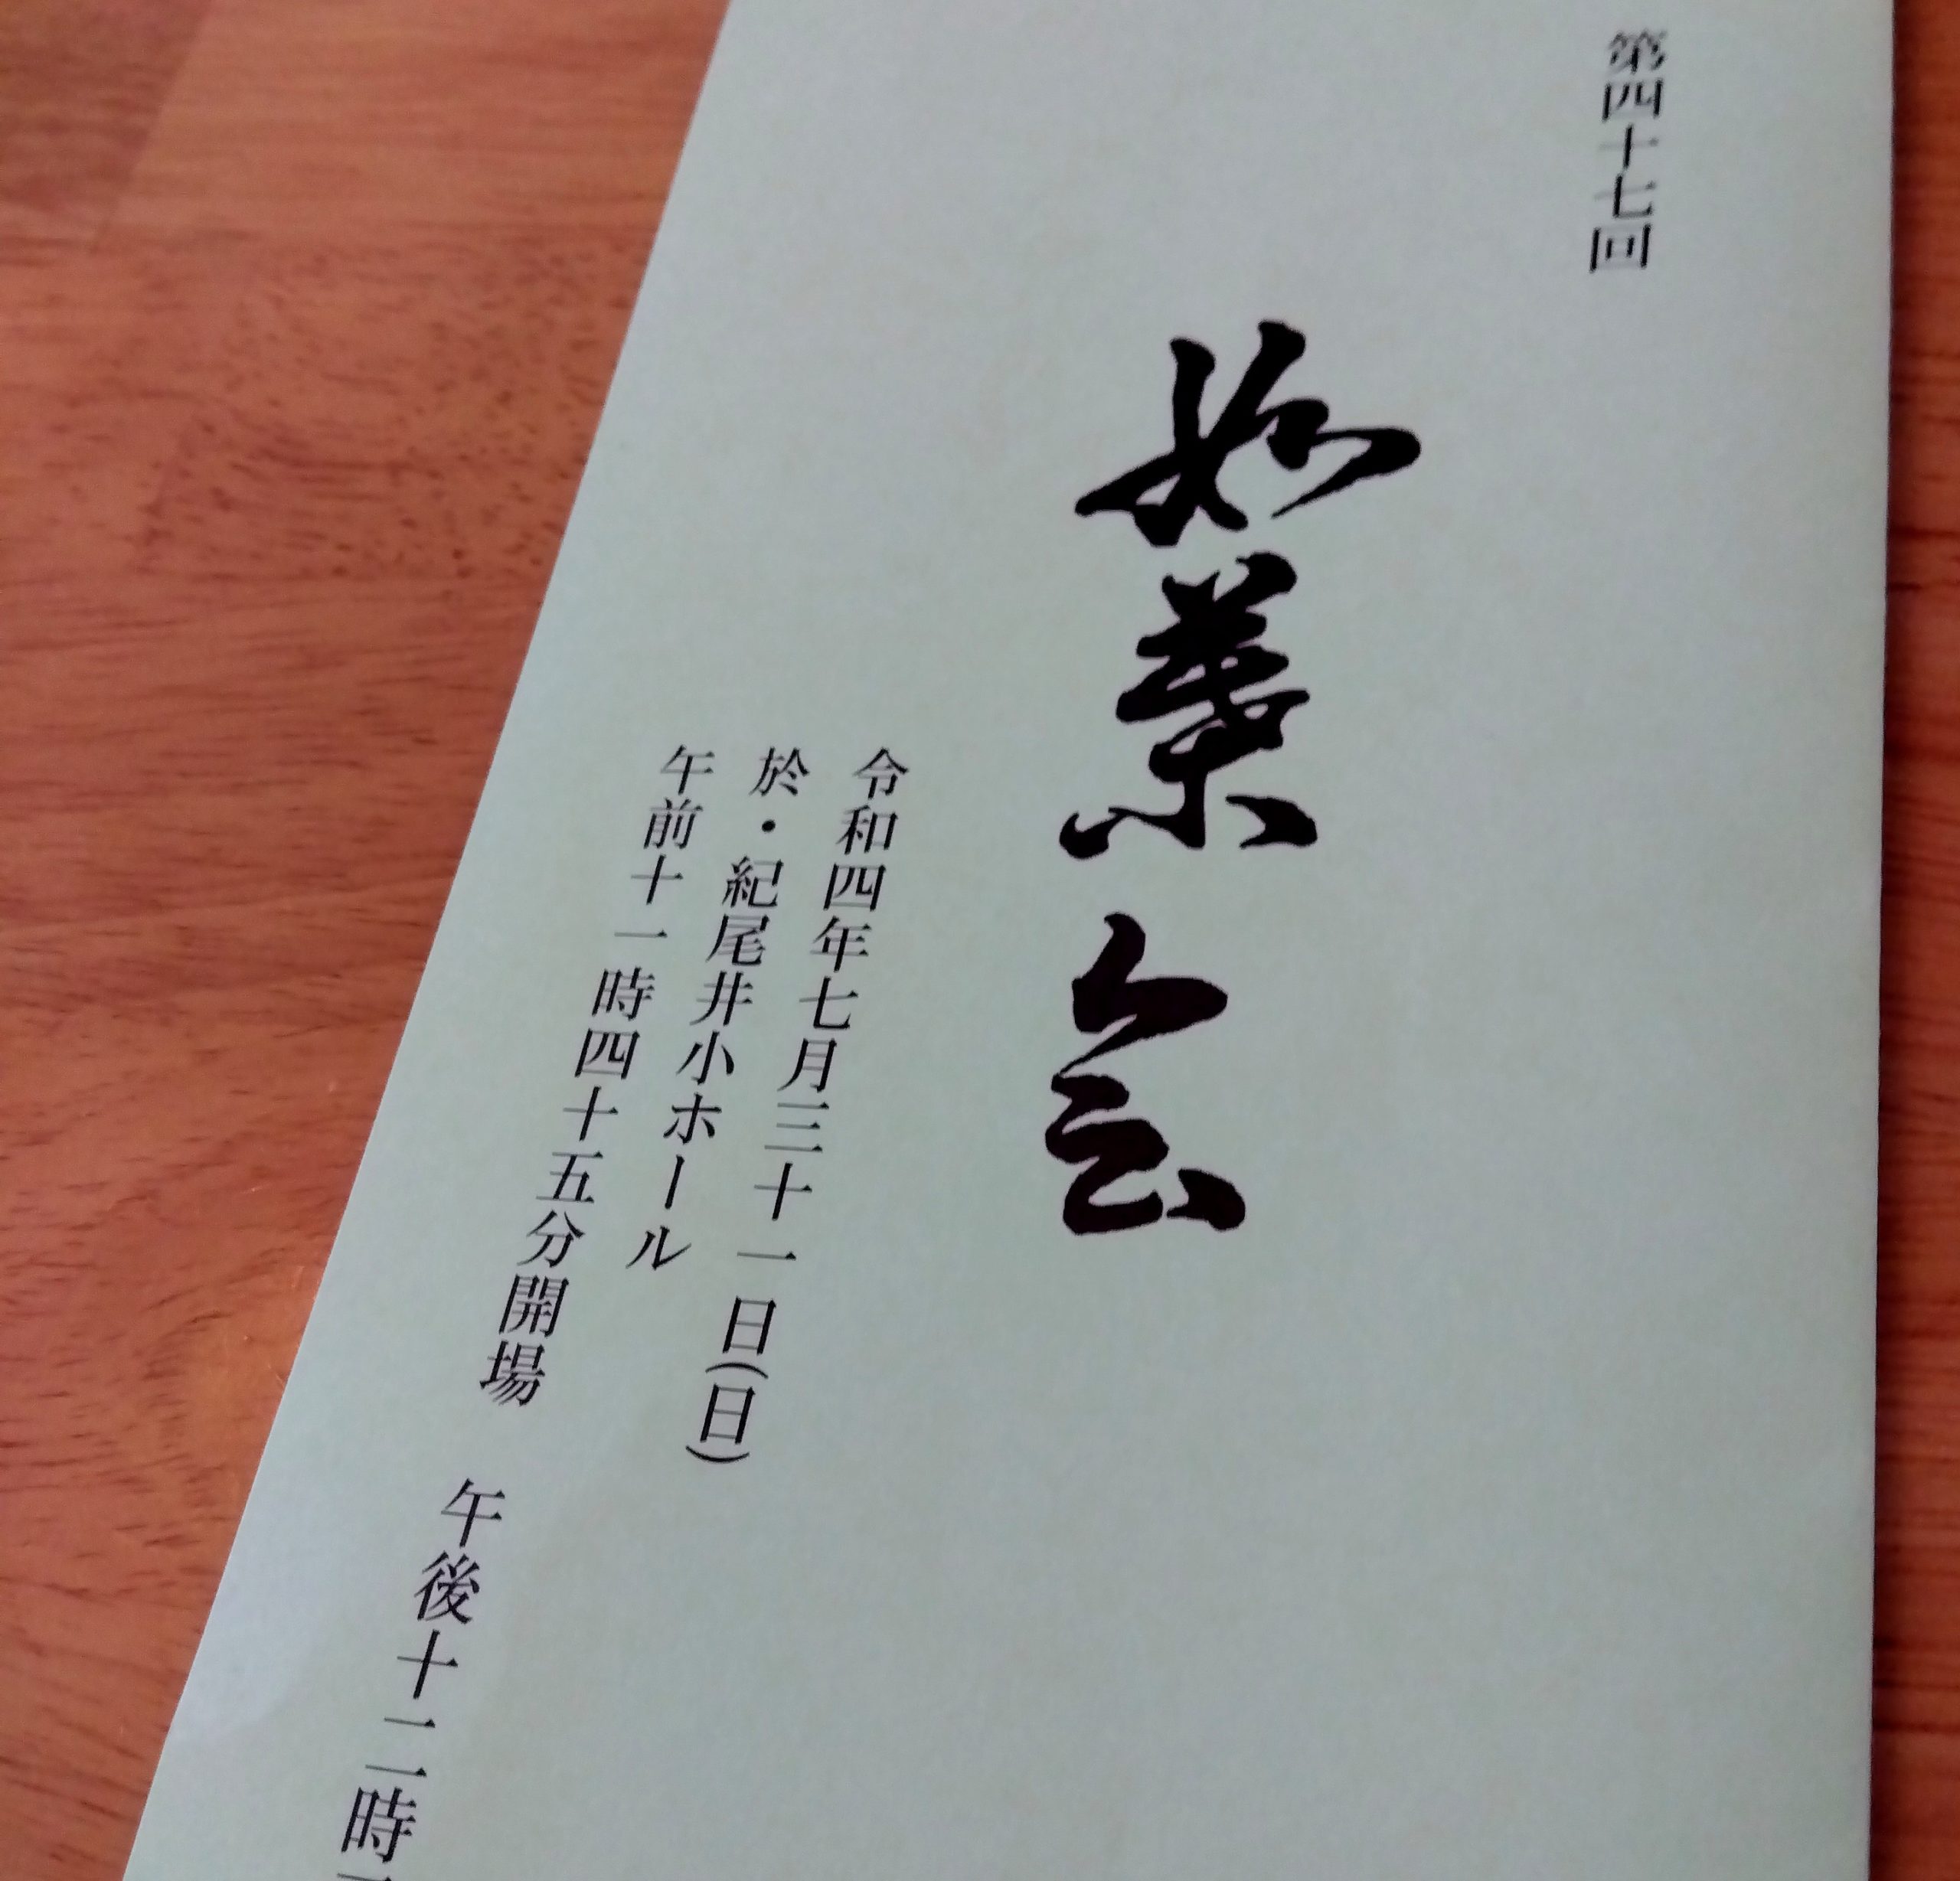 第四十七回
如葉会
令和四年七月三十一日(日)
於・紀尾井小ホール
午前十一時四十五分開場　午後十二時